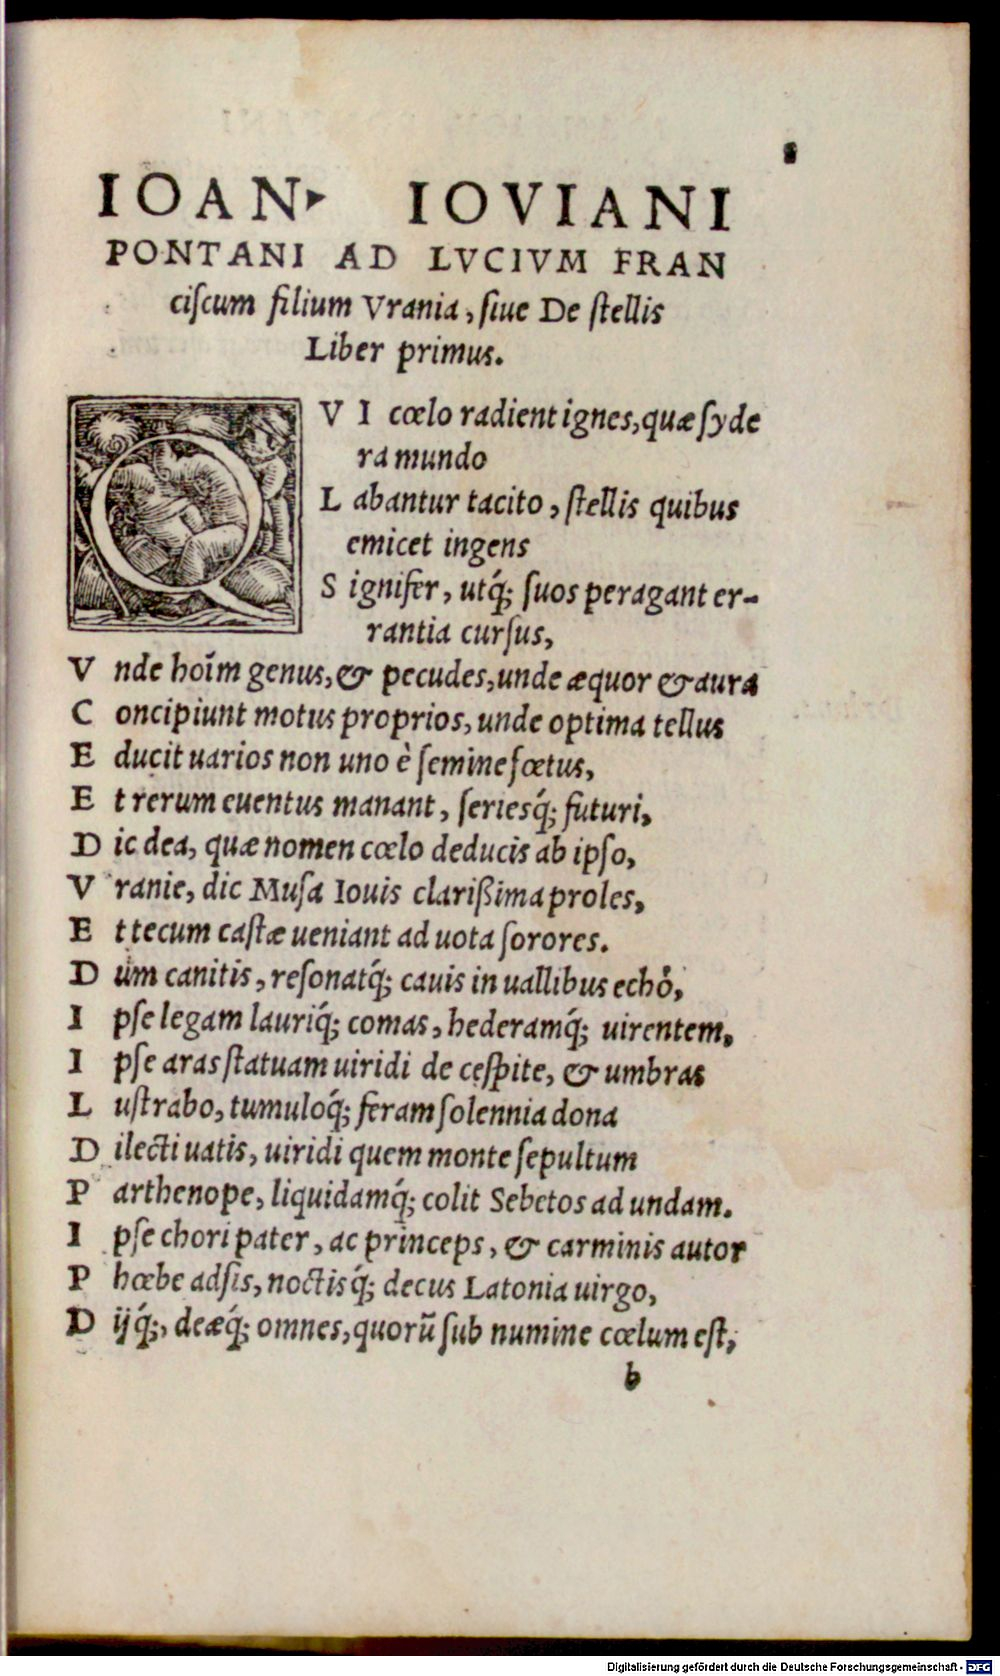 IOAN. IOVIANI
PONTANI AD LVCIVM FRAN
ciſcum filium Vrania, ſiue De ſtellis
Liber primus.
QVI cœlo radient ignes, quæ ſyde
ra mundo
Labantur tacito, ſtellis quibus
emicet ingens
Signifer, utq́; ſuos peragant er-
rantia curſus,
Vnde hoīm genus, & pecudes, unde æquor & aura
Concipiunt motus proprios, unde optima tellus
Educit uarios non uno è ſemine fœtus,
Et rerum euentus manant, ſeriesq́; futuri,
Dic dea, quæ nomen cœlo deducis ab ipſo,
Vranie, dic Muſa Iouis clariſſima proles,
Et tecum caſtæ ueniant ad uota ſorores.
Dum canitis, reſonatq́; cauis in uallibus echò,
Ipſe legam lauriq́; comas, hederamq́; uirentem,
Ipſe aras ſtatuam uiridi de ceſpite, & umbras
Luſtrabo, tumuloq́; feram ſolennia dona
Dilecti uatis, uiridi quem monte ſepultum
Parthenope, liquidamq́; colit Sebetos ad undam.
Ipſe chori pater, ac princeps, & carminis autor
Phœbe adſis, noctisq́; decus Latonia uirgo,
Dijq́;, deæq́; omnes, quorũ ſub numine cœlum eſt,
b
Digitalisierung gefördert durch die Deutsche Forschungsgemeinschaft - DFG